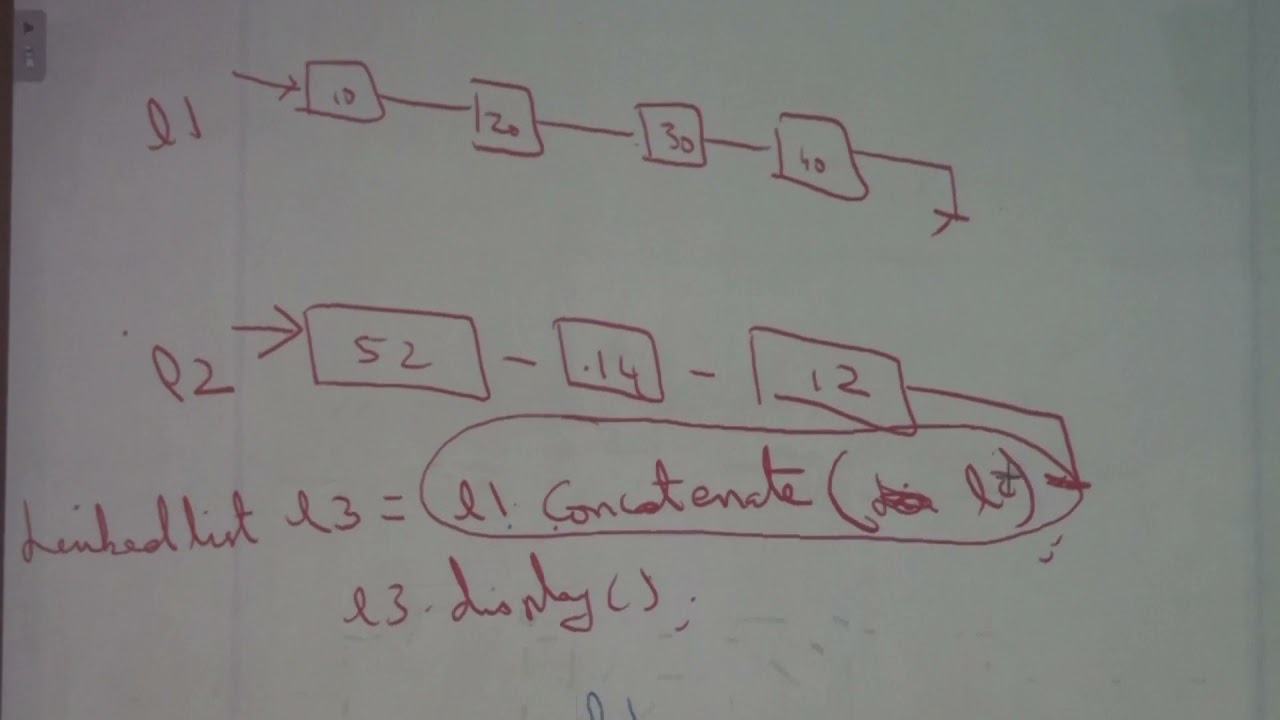 l1 10 20 30 40
l2 52 14 12
Linked list l3 = l1. Concatenate ( l2) ;
l3. display();
l1